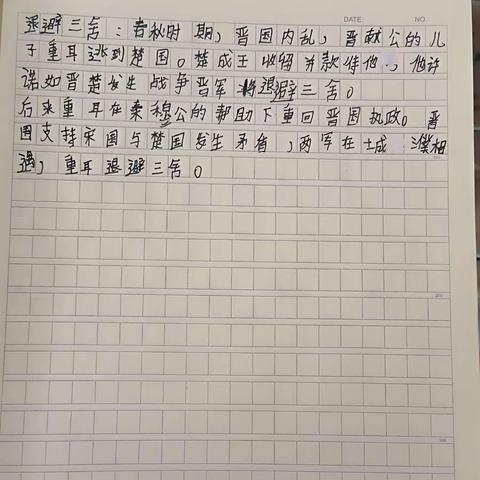 DATE: NO.
退避三舍：春秋时期，晋国内乱，晋献公的儿
子重耳逃到楚国。楚成王收留并款待他，他许
诺如晋楚发生战争晋军将退避三舍。
后来重耳在秦穆公的帮助下重回晋国执政。晋
国支持宋国与楚国发生矛盾，两军在城濮相
遇，重耳退避三舍。